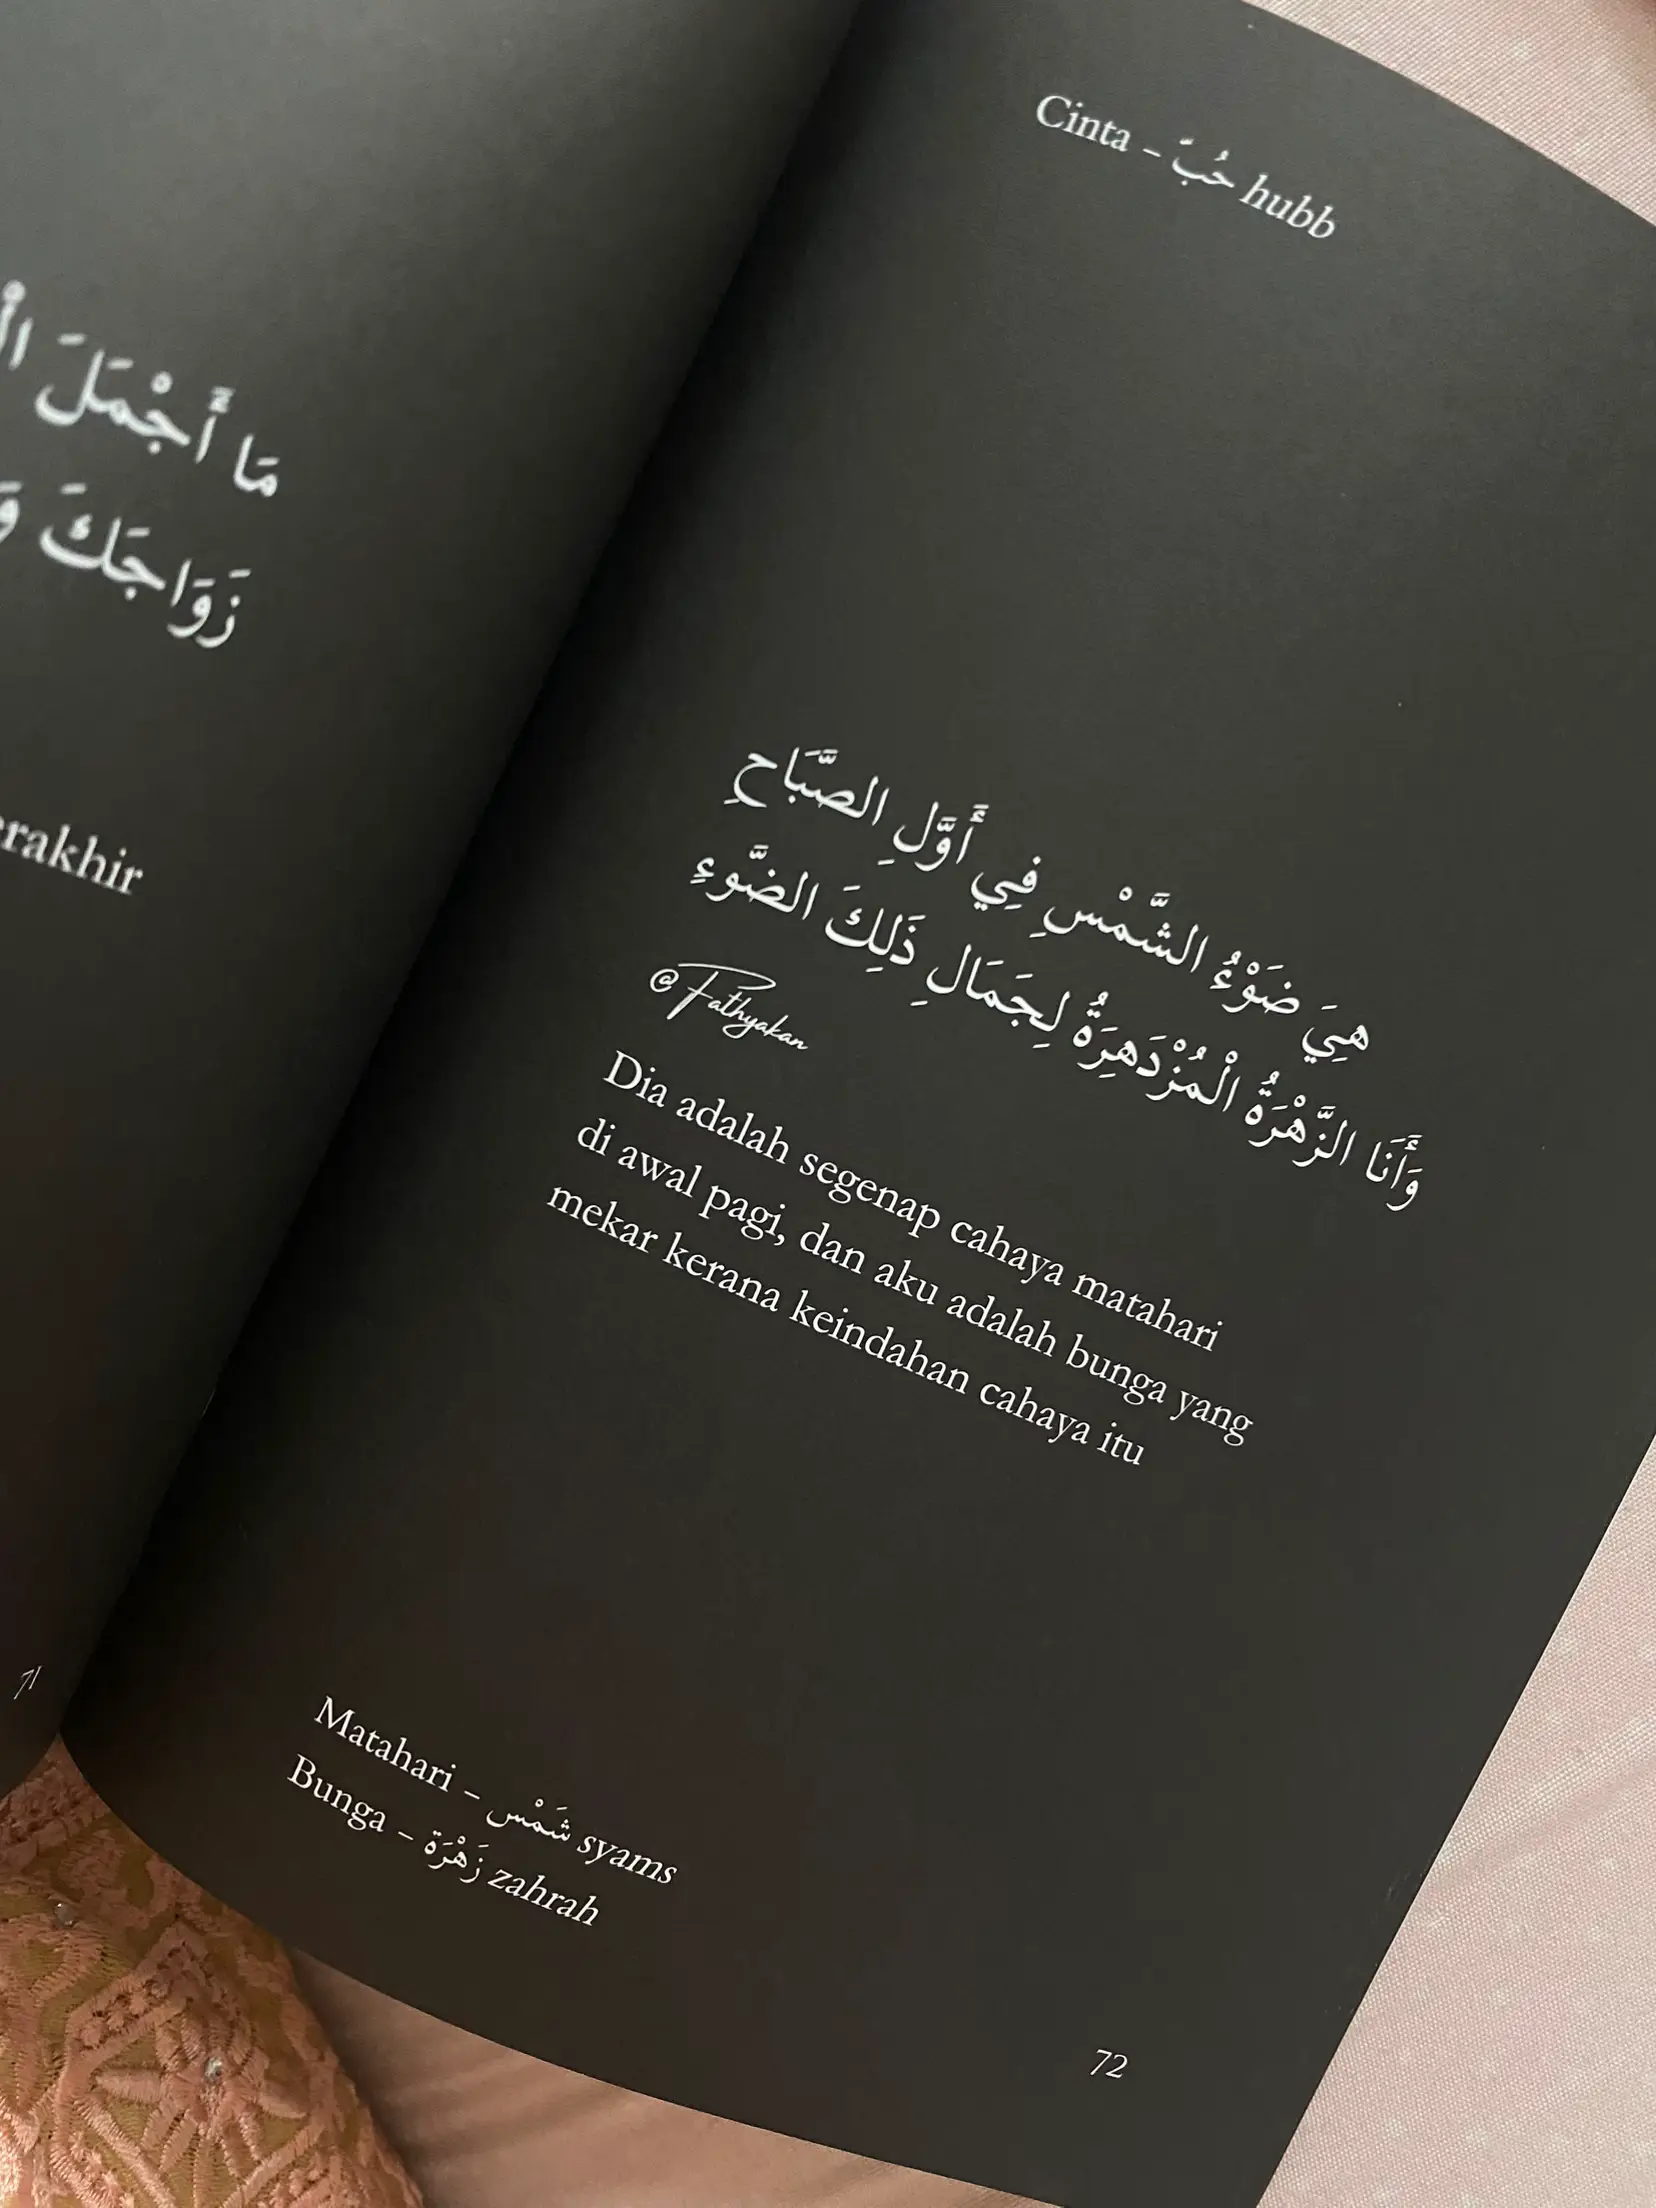 مَا أَجْمَلَ
زَوَاجَكَ
71
Cinta – حُبّ hubb
هِيَ ضَوْءُ الشَّمْسِ فِي أَوَّلِ الصَّبَاحِ
وَأَنَا الزَّهْرَةُ الْمُزْدَهِرَةُ لِجَمَالِ ذَلِكَ الضَّوءِ
@Fathyakan
Dia adalah segenap cahaya matahari
di awal pagi, dan aku adalah bunga yang
mekar kerana keindahan cahaya itu
Matahari – شَمْس syams
Bunga – زَهْرَة zahrah
72